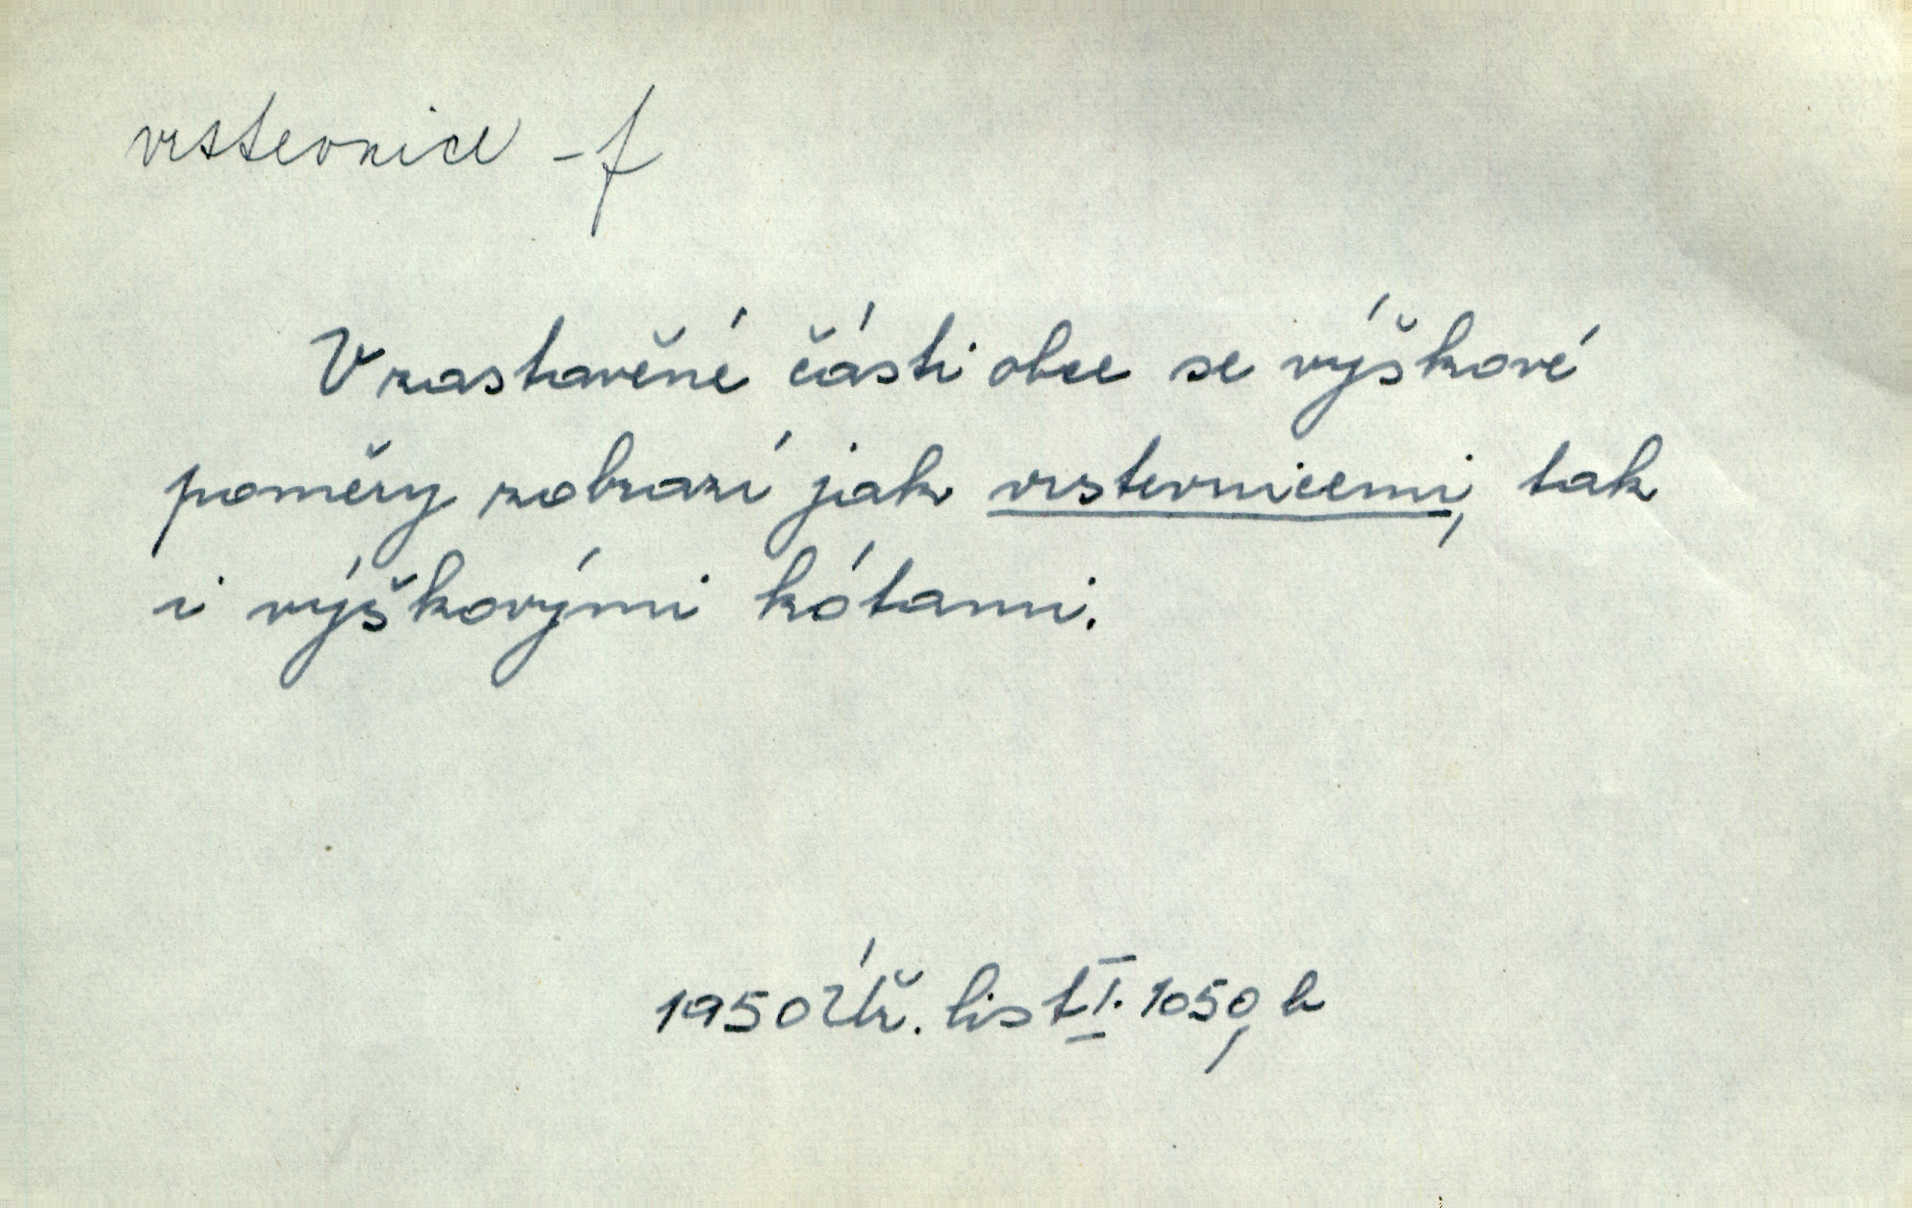 vrstevnice - f
V zastavěné části obce se výškové
poměry zobrazí jak vrstevnicemi, tak
i výškovými kótami.
1950 Úř. list I. 1050, b